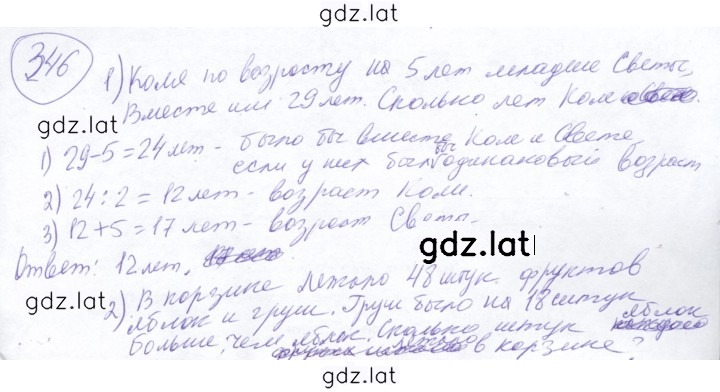 gdz.lat
346
1) Коля по возросту на 5 лет младше Светы,
Вместе им 29 лет. Сколько лет Коле
gdz.lat
1) 29-5=24 лет - было бы вместе Коле и Свете
если у них был бы одинаковый возраст
2) 24:2=12 лет - возраст Коли.
3) 12+5=17 лет - возраст Светы.
gdz.lat
Ответ: 12 лет.
2) В корзине лежало 48 штук фруктов
gdz.lat
яблок и груш. Груш было на 18 штук
больше, чем яблок. Сколько штук яблок
лежало в корзине?
gdz.lat